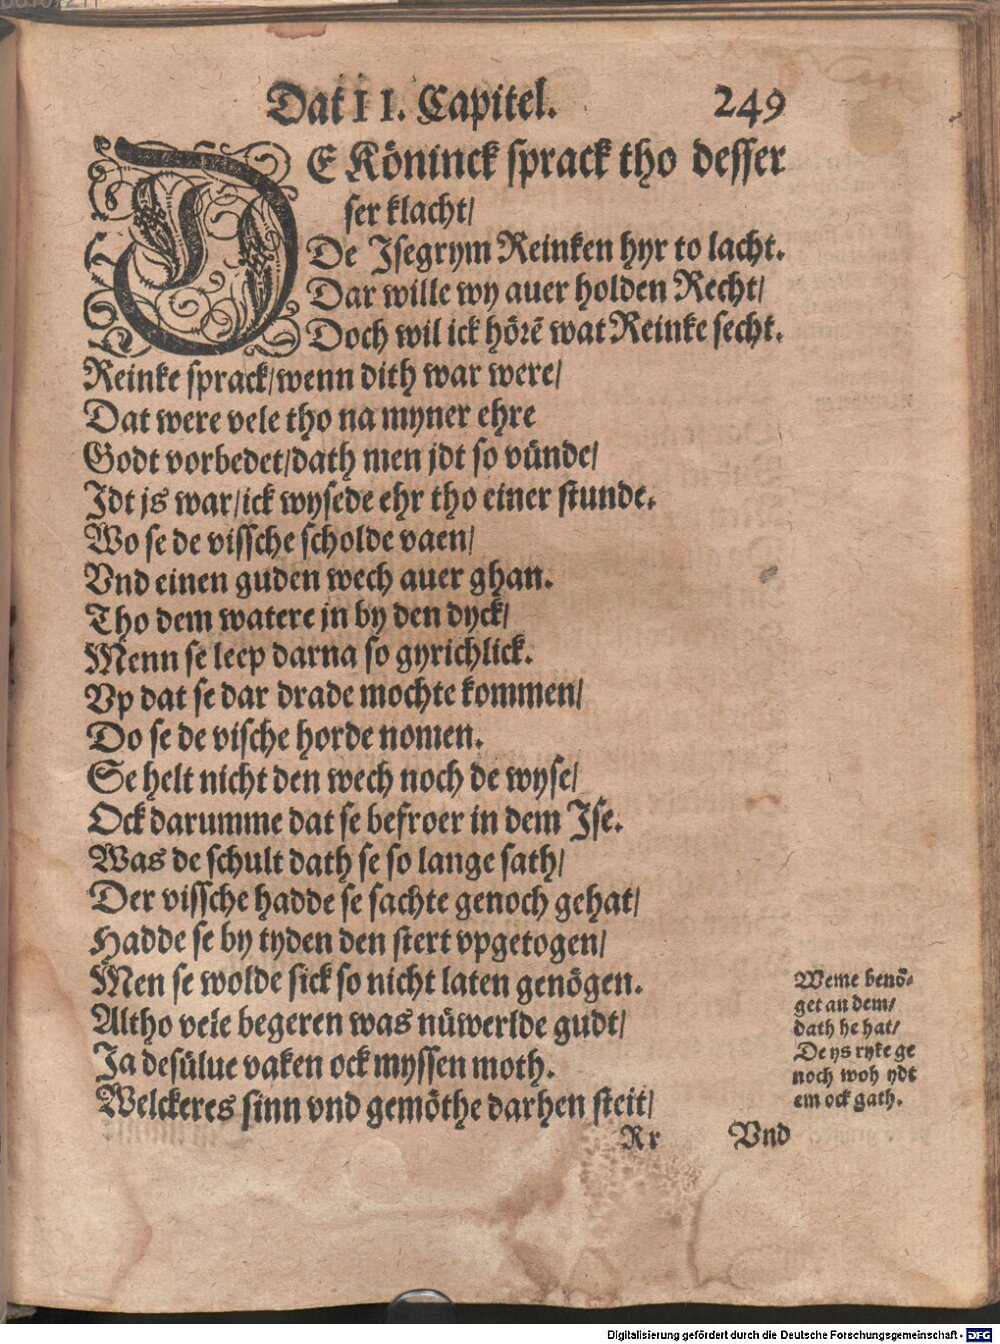 Dat II. Capitel. 249
DE Köninck sprack tho desser
ser klacht/
De Isegrym Reinken hyr to lacht.
Dar wille wy auer holden Recht/
Doch wil ick hörẽ wat Reinke secht.
Reinke sprack/wenn dith war were/
Dat were vele tho na myner ehre
Godt vorbedet/dath men jdt so vünde/
Idt js war/ick wysede ehr tho einer stunde.
Wo se de vissche scholde vaen/
Vnd einen guden wech auer ghan.
Tho dem watere in by den dyck/
Menn se leep darna so gyrichlick.
Vp dat se dar drade mochte kommen/
Do se de vische horde nomen.
Se helt nicht den wech noch de wyse/
Ock darumme dat se befroer in dem Ise.
Was de schult dath se so lange sath/
Der vissche hadde se sachte genoch gehat/
Hadde se by tyden den stert vpgetogen/
Men se wolde sick so nicht laten genögen.
Altho vele begeren was nüwerlde gudt/
Ja desülue vaken ock myssen moth.
Welckeres sinn vnd gemöthe darhen steit/
Weme benö-
get an dem/
dath he hat/
De ys ryke ge
noch woh ydt
em ock gath.
Rr Vnd
Digitalisierung gefördert durch die Deutsche Forschungsgemeinschaft - DFG